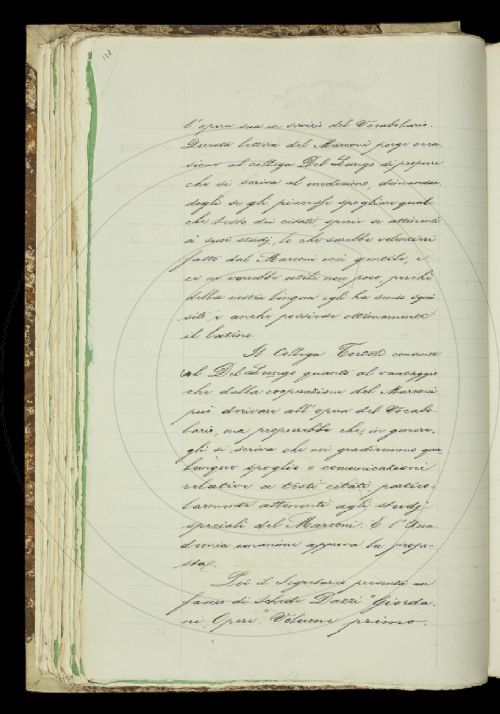 l'opera sua in servizio del Vocabolario.
Questa lettera del Marconi porge occa-
sione al collega Del Lungo di proporre
che si scriva al medesimo, domandan-
dogli se gli piacesse spogliare qual-
che testo dei citati, specie se attinenti
a' suoi studj, lo che sarebbe volentieri
fatto dal Marconi così gentile, e
ce ne verrebbe utile non poco, perchè
della nostra lingua egli ha senso squi-
sito e anche possiede ottimamente
il latino.
Il Collega Tortoli consente
al Del Lungo quanto al vantaggio
che dalla cooperazione del Marconi
può derivare all'opera del Vocabo-
lario, ma proporrebbe che, in genere,
gli si scriva che noi gradiremmo qua-
lunque spoglio e comunicazioni
relative a testi citati partico-
larmente attenenti agli studj
speciali del Marconi. E l'Acca-
demia unanime approva la propo-
sta.
Poi il Segretario presenta un
fascio di schede Dazzi "Giorda-
ni, Opere." Volume primo.